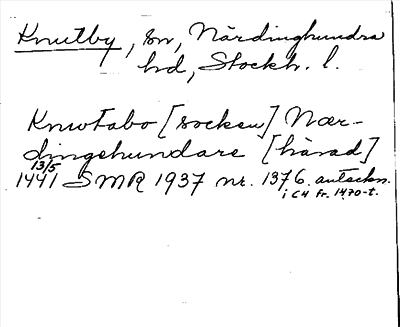 Knutby, sn, Närdinghundra
hd, Stockh. l.
Knwtabo [socken] Nær-
dingehundare [härad]
13/5
1441 SMR 1937 nr. 1376. anteckn.
i C4 fr. 1470-t.